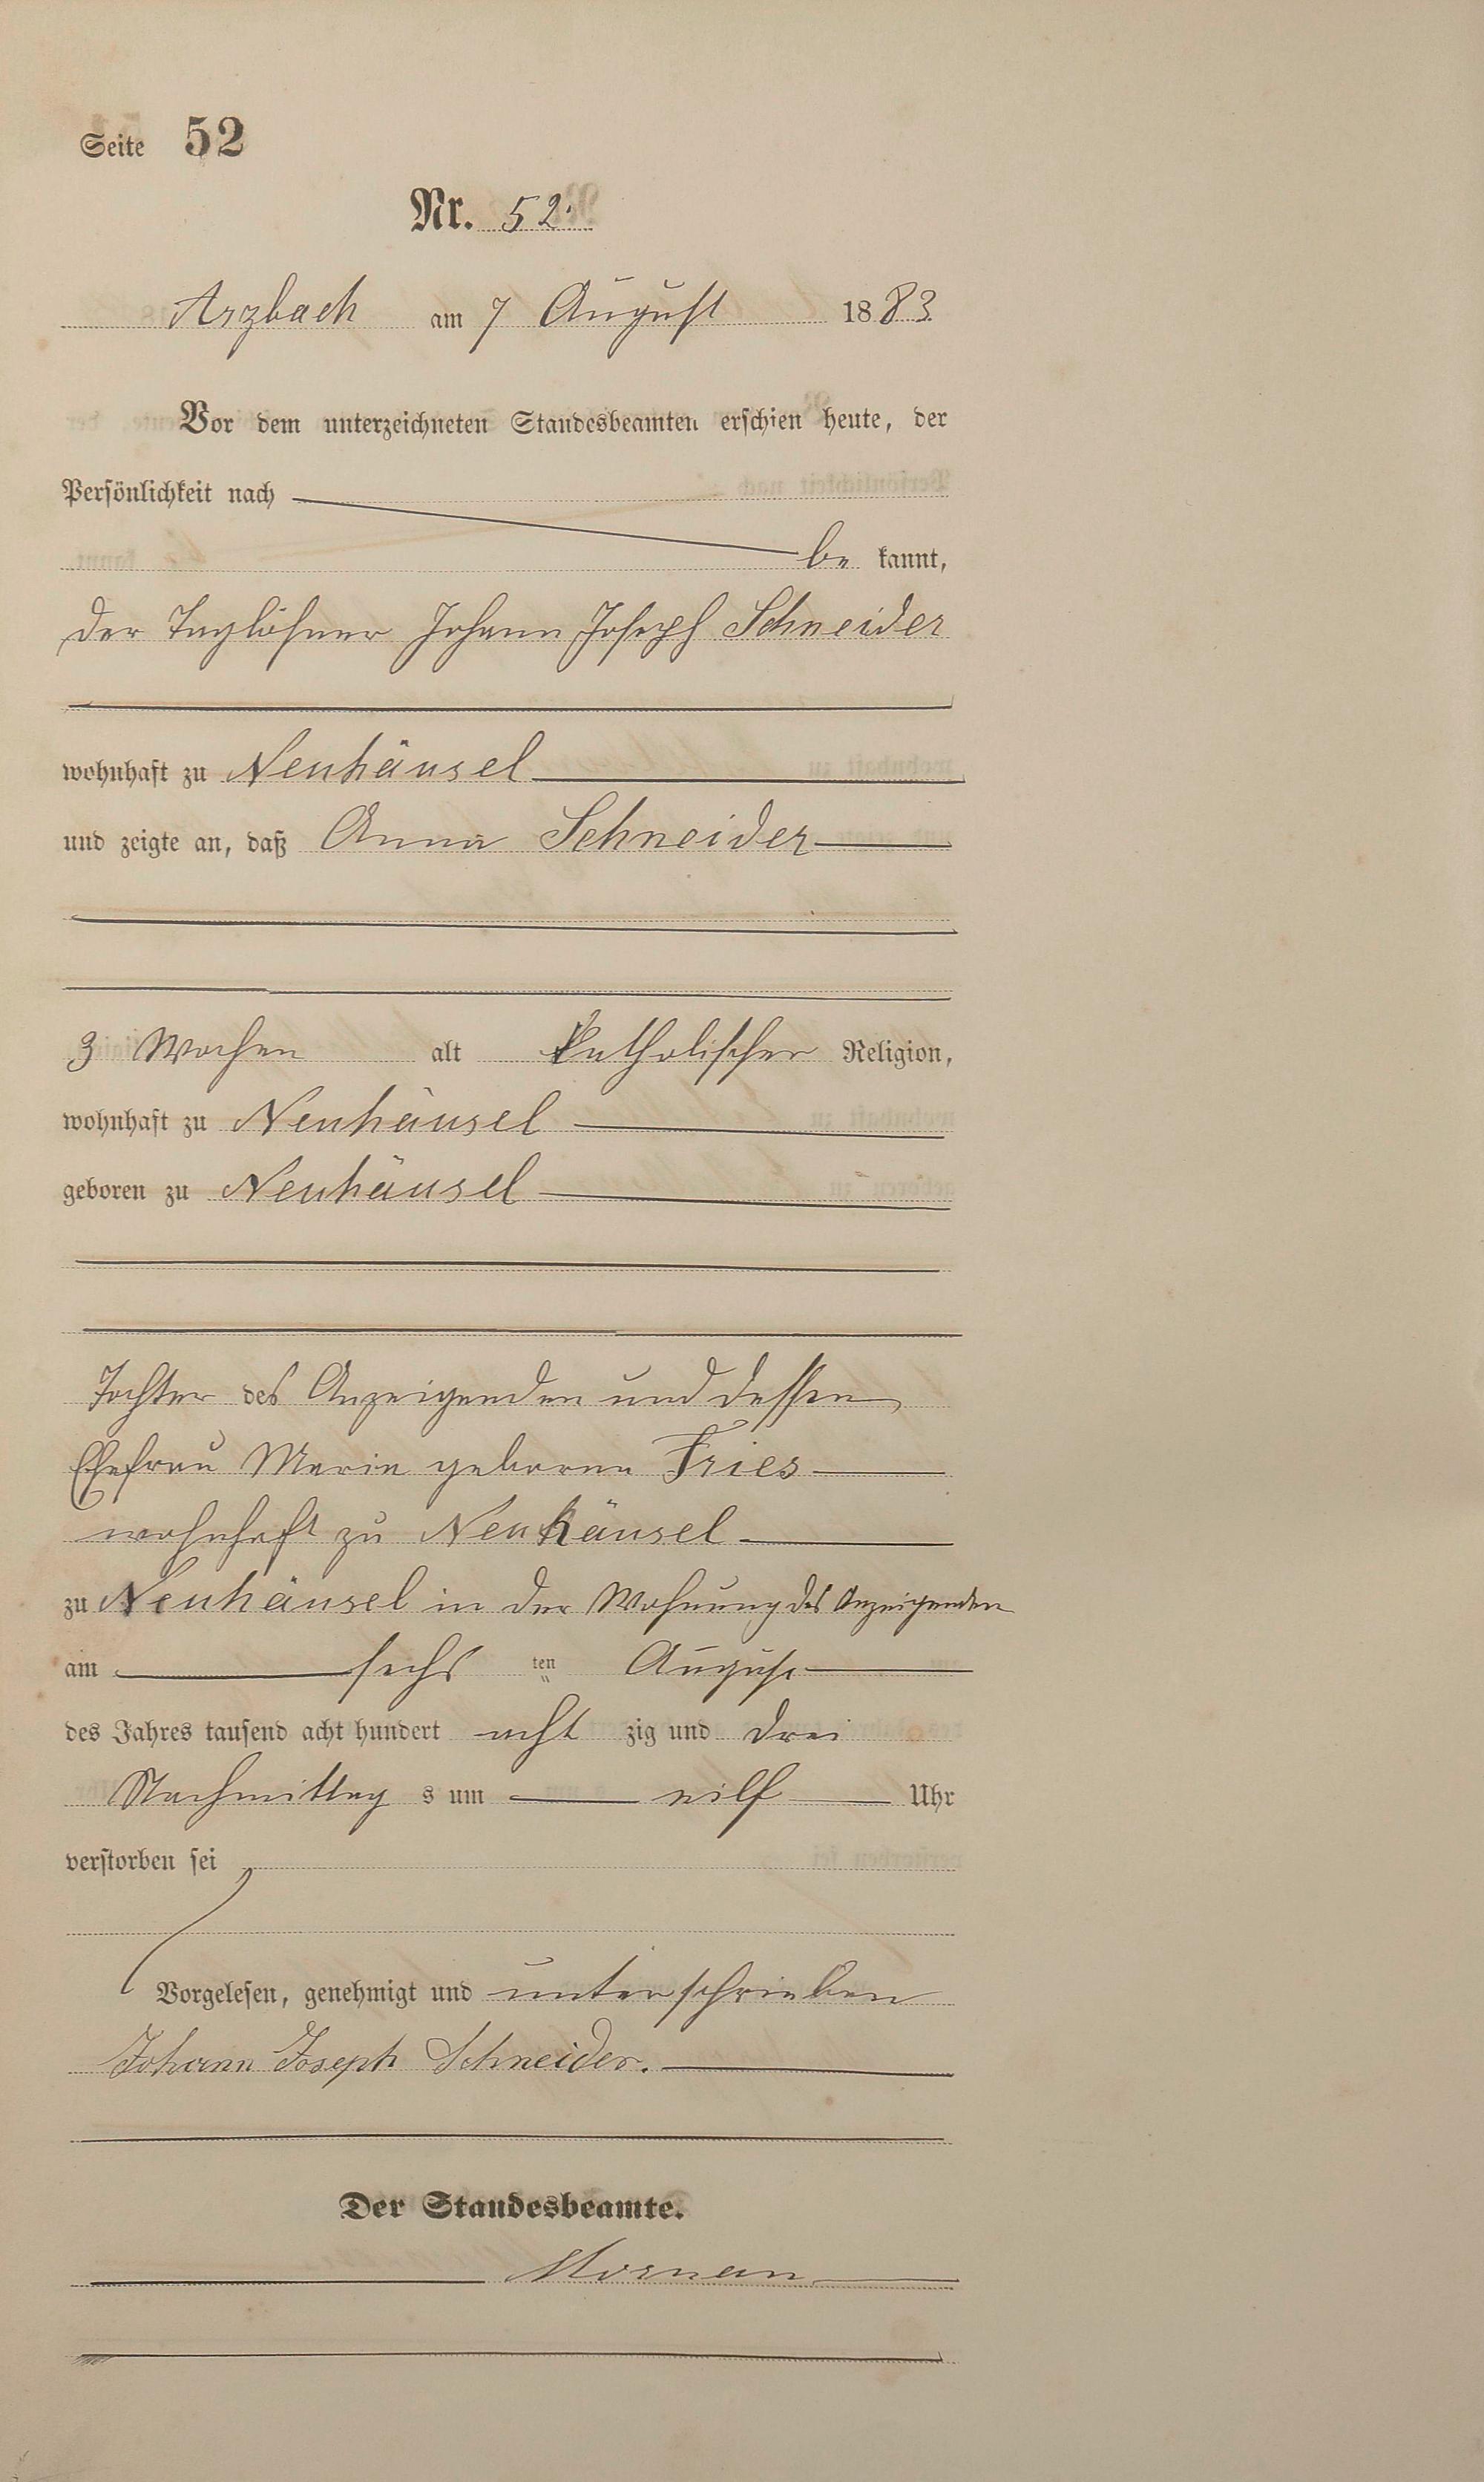 Seite 52
Nr. 52.
Arzbach am 7 August 1883
Vor dem unterzeichneten Standesbeamten erschien heute, der
Persönlichkeit nach
be kannt,
der Taglöhner Johann Joseph Schneider
wohnhaft zu Neuhäusel
und zeigte an, daß Anna Schneider
3 Wochen alt katholischer Religion,
wohnhaft zu Neuhäusel
geboren zu Neuhäusel
Tochter des Anzeigenden und dessen
Ehefrau Maria geborene Fries
wohnhaft zu Neuhäusel
zu Neuhäusel in der Wohnung des Anzeigenden
am sechs ten August
des Jahres tausend acht hundert acht zig und drei
Nachmittag s um eilf Uhr
verstorben sei
Vorgelesen, genehmigt und unterschrieben
Johann Joseph Schneider.
Der Standesbeamte.